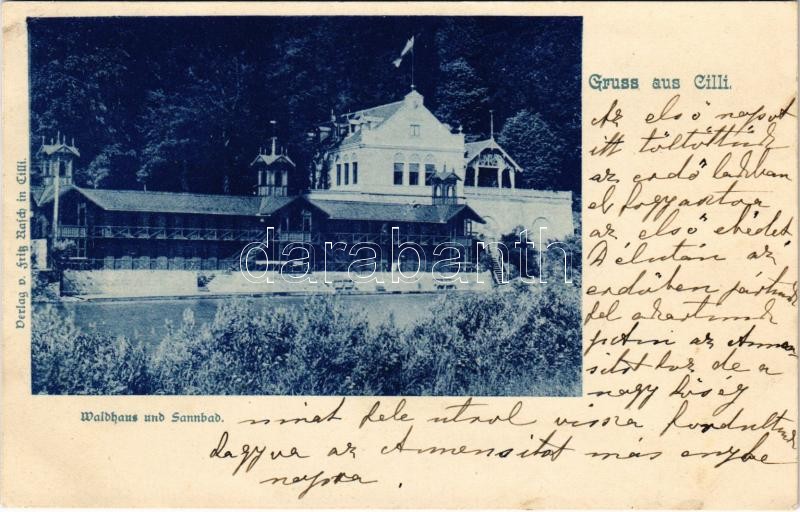 Gruss aus Cilli.
Az első napot
itt töltöttük
az erdő lakban
elfogyasztva
az első ebédet
Délután az
erdőben jártunk
fel akartunk
az
de a
nagy hőség
miatt fele utrol vissza fordultunk
hagyva az más enyhe
napra.
Waldhaus und Sannbad.
Verlag v. Fritz Rasch in Cilli.
darabanth.com